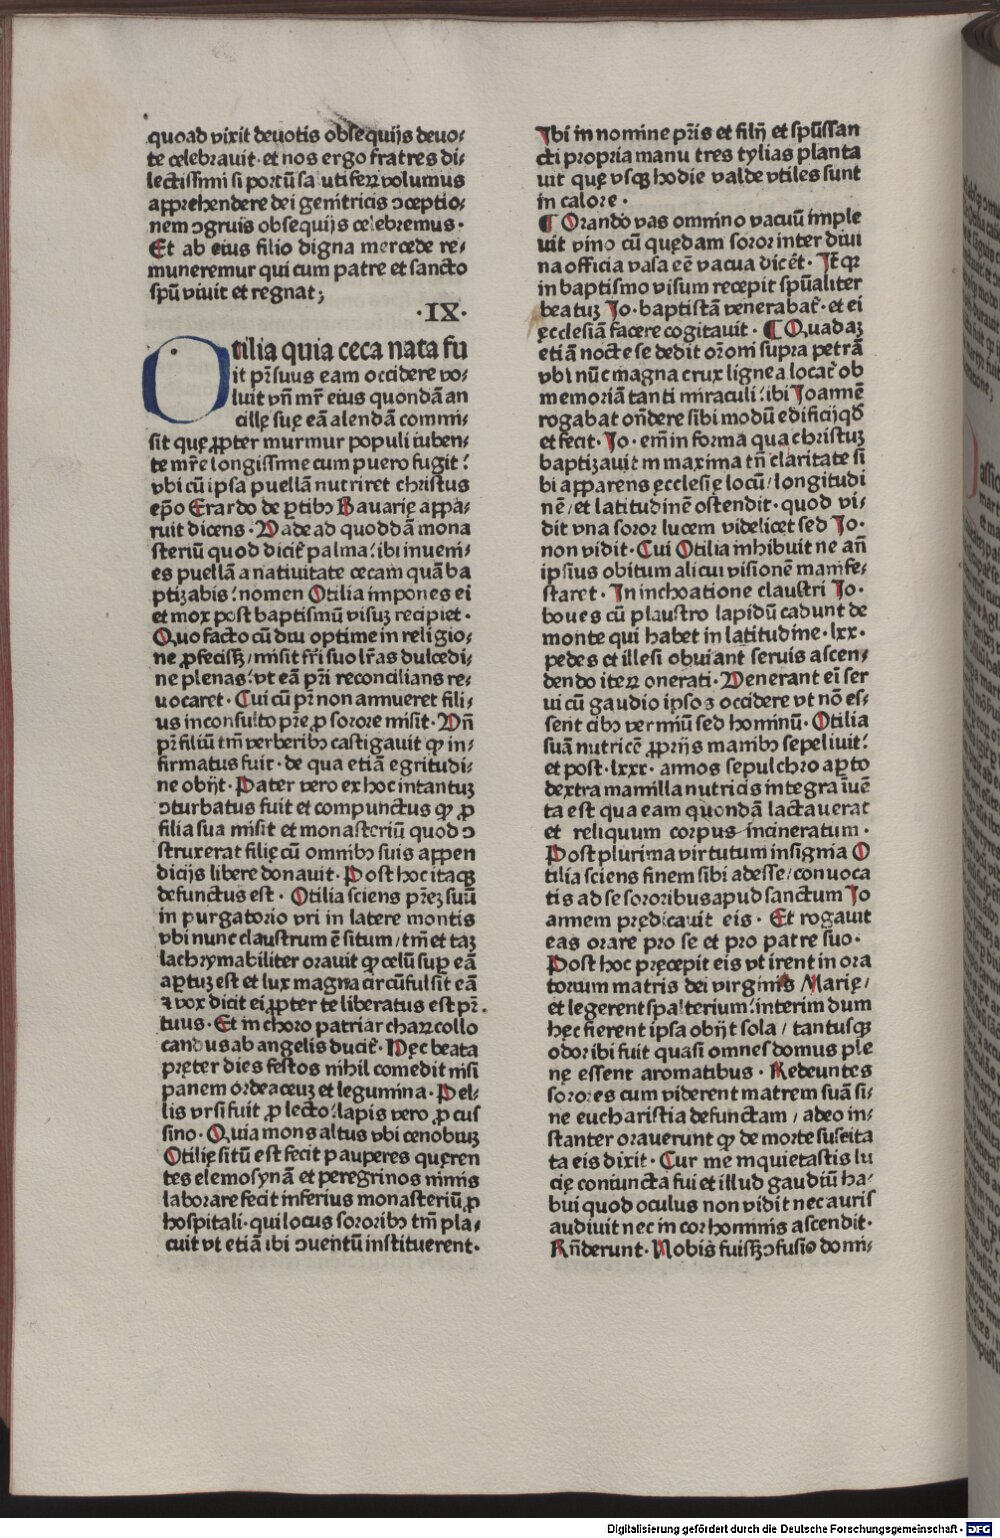 quoad vixit deuotis obsequijs deuo⸗
te celebrauit · et nos ergo fratres di⸗
lectissimi si portū salutiferꝝ volumus
apprehendere dei genitricis ↄceptio⸗
nem ↄgruis obsequijs celebremus ·
Et ab eius filio digna mercede re⸗
muneremur qui cum patre et sancto
spū viuit et regnat;
·IX·
Otilia quia ceca nata fu
it pr̄ suus eam occidere vo⸗
luit vn̄ mr̄ eius quondā an
cillę suę eā alendā commi⸗
sit quę ꝓpter murmur populi iuben⸗
te mr̄e longissime cum puero fugit :
vbi cū ipsa puellā nutriret christus
ep̄o Erardo de ꝑtibꝫ Bauarię appa⸗
ruit dicens · Vade ad quoddā mona
steriū quod dicit̄ palma : ibi inueni⸗
es puellā a natiuitate cecam quā ba
ptizabis : nomen Otilia impones ei
et mox post baptismū visuꝫ recipiet ·
Quo facto cū diu optime in religio⸗
ne ꝓfecisꝫ / misit fr̄i suo lr̄as dulcedi⸗
ne plenas : vt eā pr̄i reconcilians re⸗
uocaret · Cui cū pr̄ non annueret fili⸗
us inconsulto pr̄e ꝓ sorore misit · Vn̄
pr̄ filiū tm̄ verberibꝫ castigauit ꝙ in⸗
firmatus fuit · de qua etiā egritudi⸗
ne obijt · Pater vero ex hoc intantuꝫ
ↄturbatus fuit et compunctus ꝙ ꝓ
filia sua misit et monasteriū quod ↄ
struxerat filię cū omnibꝫ suis appen
dicijs libere donauit · Post hoc itaqꝫ
defunctus est · Otilia sciens pr̄eꝫ suū
in purgatorio vri in latere montis
vbi nunc claustrum ē situm / tm̄ et taꝫ
lachrymabiliter orauit ꝙ celū suꝑ eā
aptuꝫ est et lux magna circūfulsit eā
⁊ vox dicit ei ꝓpter te liberatus est pr̄
tuus · Et in choro patriarcharꝝ collo
candus ab angelis ducit̄ · Hęc beata
pręter dies festos nihil comedit nisi
panem ordeaceuꝫ et legumina · Pel⸗
lis vrsi fuit ꝓ lecto : lapis vero ꝓ cus
sino · Quia mons altus vbi cenobiuꝫ
Otilię sitū est fecit pauperes quęren
tes elemosynā et peregrinos nimis
laborare fecit inferius monasteriū ꝓ
hospitali · qui locus sororibꝫ tm̄ pla⸗
cuit vt etiā ibi ↄuentū instituerent ·
Ibi in nomine pr̄is et filij et spūssan
cti propria manu tres tylias planta
uit quę vsqꝫ hodie valde vtiles sunt
in calore ·
¶ Orando vas omnino vacuū imple
uit vino cū quędam soror inter diui
na officia vasa eē vacua dicēt · It̄ qꝛ
in baptismo visum recepit spūaliter
beatuꝫ Jo · baptistā venerabat̄ · et ei
ęcclesiā facere cogitauit · ¶ Quadaꝫ
etiā nocte se dedit or̄oni supra petrā
vbi nūc magna crux lignea locat̄ ob
memoriā tanti miraculi : ibi Joannē
rogabat on̄dere sibi modū edificij qd̄
et fecit · Jo · em̄ in forma qua christuꝫ
baptizauit in maxima tn̄ claritate si
bi apparens ęcclesię locū / longitudi
nē / et latitudinē ostendit · quod vi⸗
dit vna soror lucem videlicet sed Jo ·
non vidit · Cui Otilia inhibuit ne an̄
ipsius obitum alicui visionē manife⸗
staret · In inchoatione claustri Jo ·
boues cū plaustro lapidū cadunt de
monte qui habet in latitudine · lxx ·
pedes et illesi obuiant seruis ascen⸗
dendo iterꝝ onerati · Venerant ei ser
ui cū gaudio ipsos occidere vt nō es⸗
sent cibꝫ vermiū sed hominū · Otilia
suā nutricē ꝓprijs manibꝫ sepeliuit :
et post · lxxx · annos sepulchro aꝑto
dextra mamilla nutricis integra īuē
ta est qua eam quondā lactauerat
et reliquum corpus incineratum ·
Post plurima virtutum insignia O
tilia sciens finem sibi adesse / conuoca
tis ad se sororibus apud sanctum Jo
annem prędicauit eis · Et rogauit
eas orare pro se et pro patre suo ·
Post hoc pręcepit eis vt irent in ora
torium matris dei virginis Marię /
et legerent spalterium : interim dum
hęc fierent ipsa obijt sola / tantusqꝫ
odor ibi fuit quasi omnes domus ple
nę essent aromatibus · Redeuntes
sorores cum viderent matrem suā si⸗
ne eucharistia defunctam / adeo in⸗
stanter orauerunt ꝙ de morte suscita
ta eis dixit · Cur me inquietastis lu
cię coniuncta fui et illud gaudiū ha⸗
bui quod oculus non vidit nec auris
audiuit nec in cor hominis ascendit ·
Rn̄derunt · Nobis fuisꝫ ↄfusio domi⸗
Digitalisierung gefördert durch die Deutsche Forschungsgemeinschaft - DFG